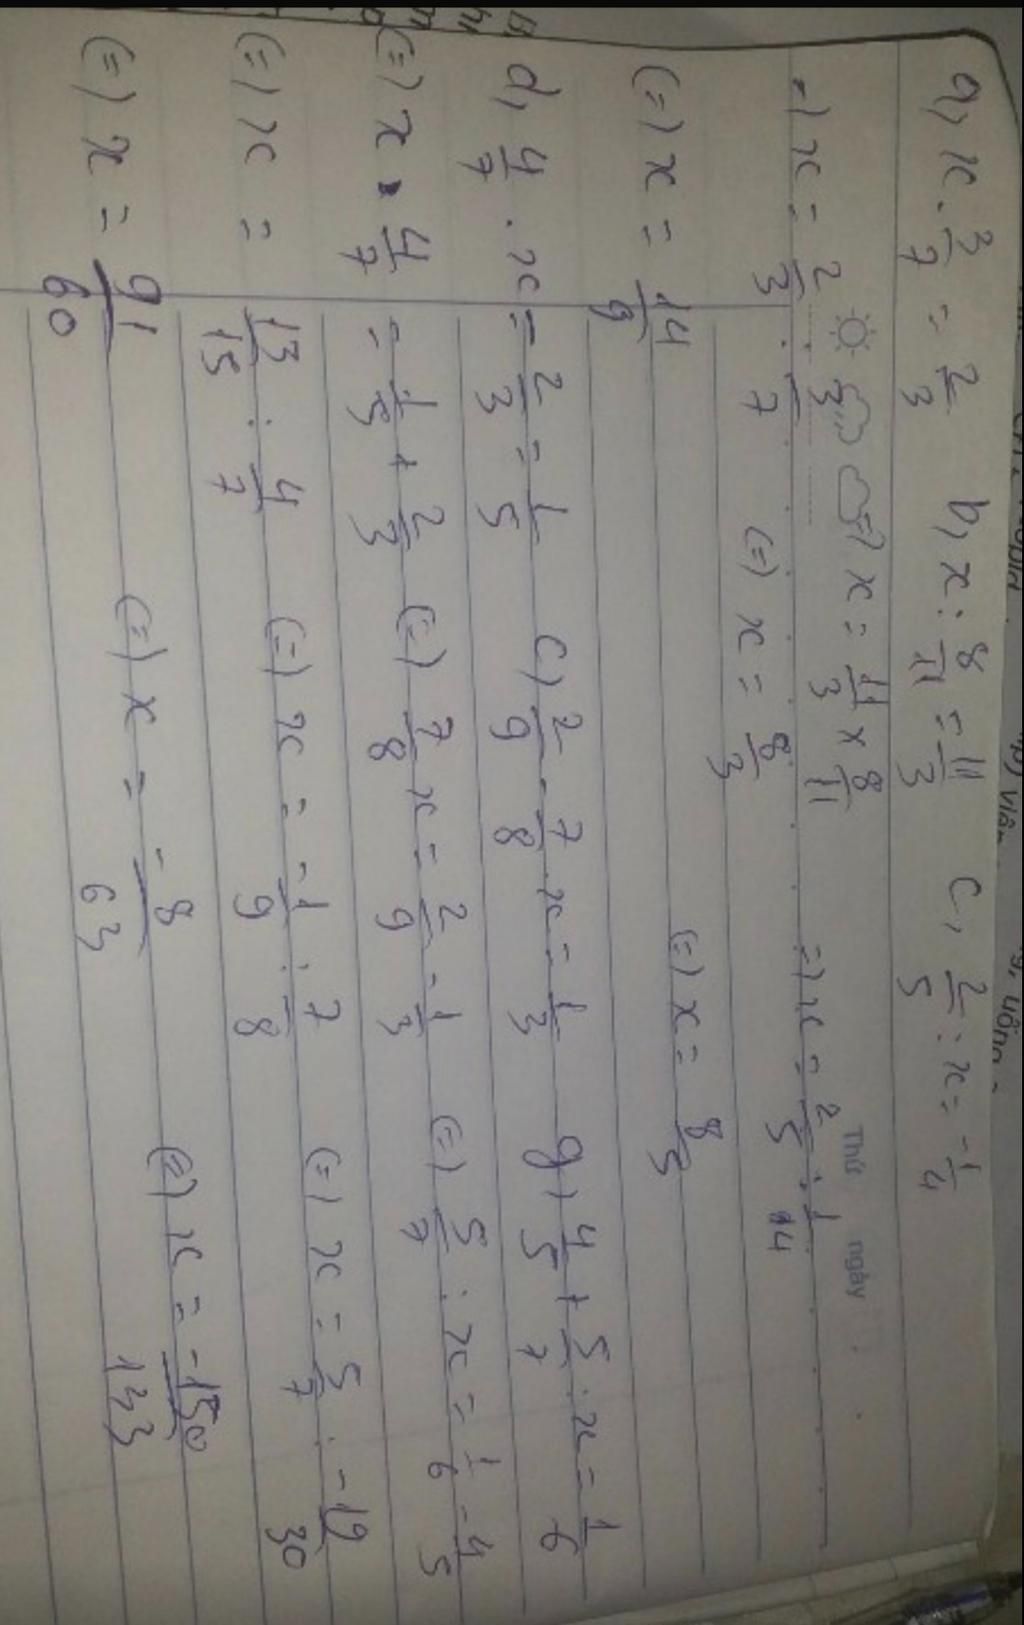 a, x . 3/7 = 2/3   b, x : 8/11 = 11/3   c, 2/5 : x = -1/4
=) x = 2/3 : 3/7   =) x = 11/3 x 8/11   =) x = 2/5 : -1/4
Thứ ngày
(=) x = 14/9   (=) x = 8/3   (=) x = 8/5
d, 4/7 . x = 2/3 = 1/5   c) 2/9 - 7/8 . x = 1/3   g) 4/5 + 5/7 : x = 1/6
(=) x . 4/7 = 1/5 + 2/3   (=) 7/8 x = 2/9 - 1/3   (=) 5/7 : x = 1/6 - 4/5
(=) x = 13/15 : 4/7   (=) x = -1/9 : 7/8   (=) x = 5/7 : -19/30
(=) x = 91/60   (=) x = -8/63   (=) x = -150/133